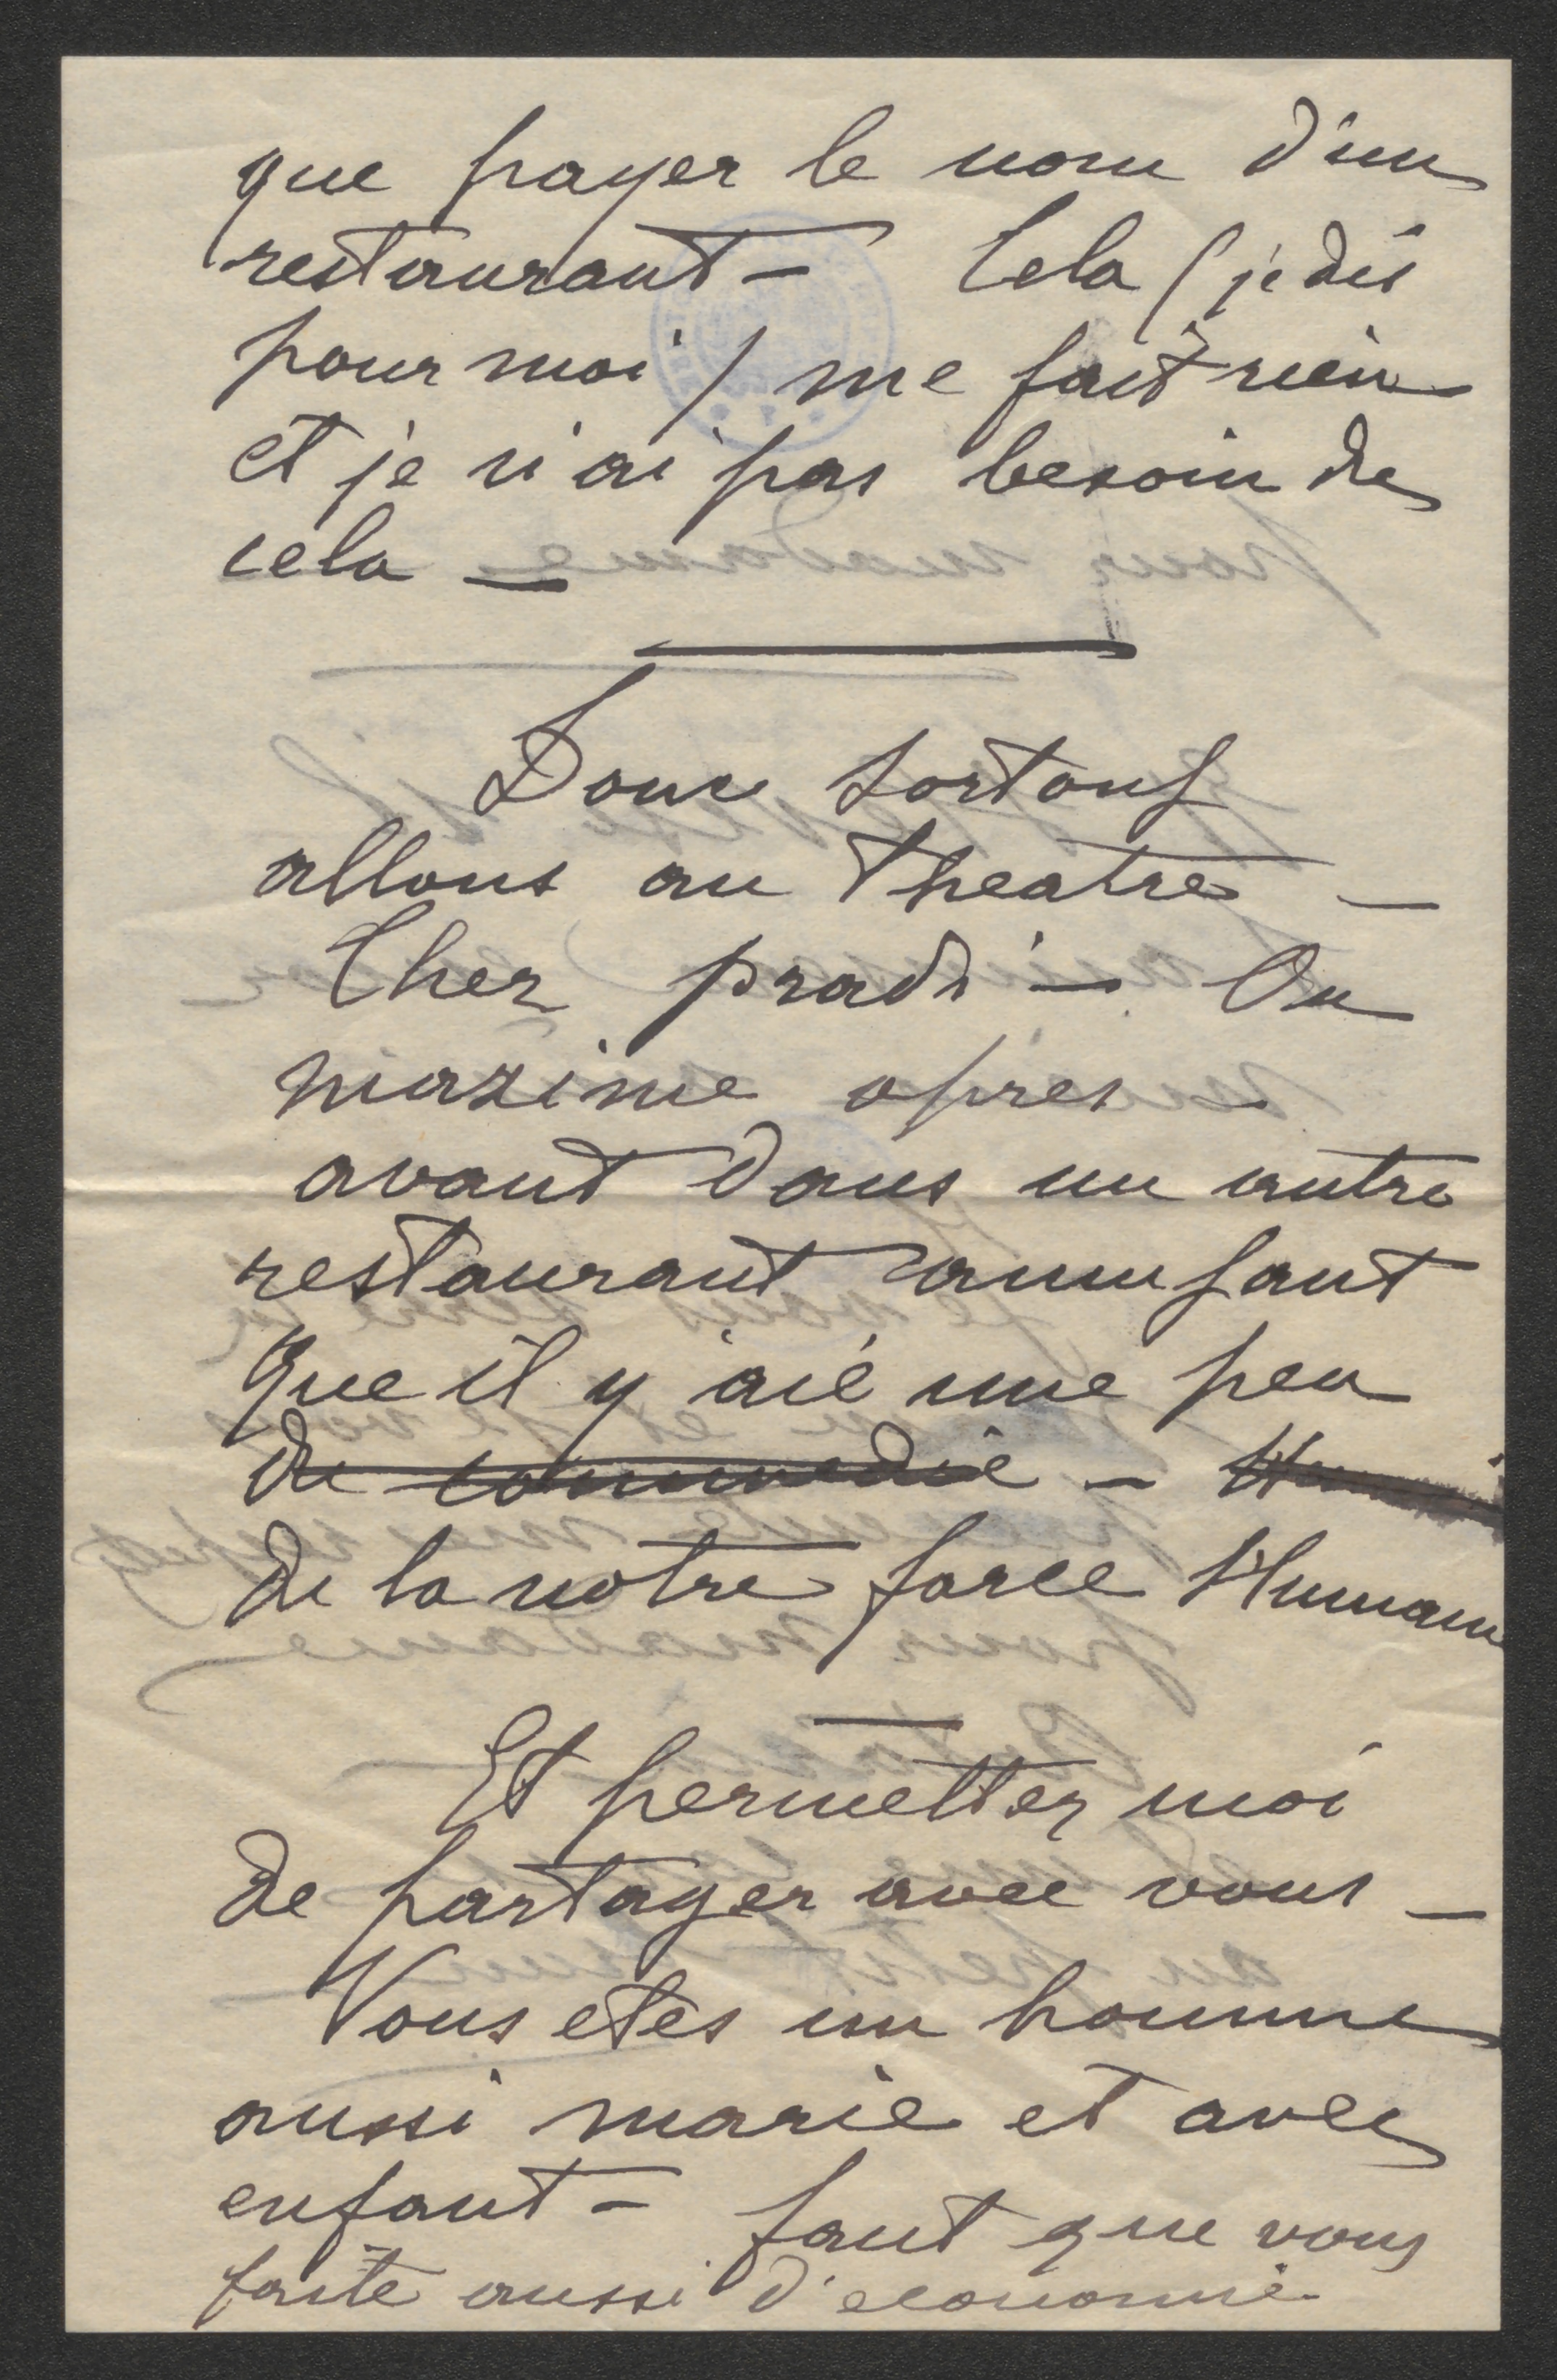 que payer le nom d'un
restaurant — Cela (je dis
pour moi) me fait rien
et je n'ai pas besoin de
cela —
Donc sortons
allons au Theatre —
Cher pradi — Ou
maxime apres —
avant dans un autre
restaurant amusant
que il y aié une peu
de commedie —
de la notre farce Humain
Et permetter moi
de partager avec vous —
Vous etes un homme
aussi marie et avec
enfant — faut que vous
faite aussi d'economie